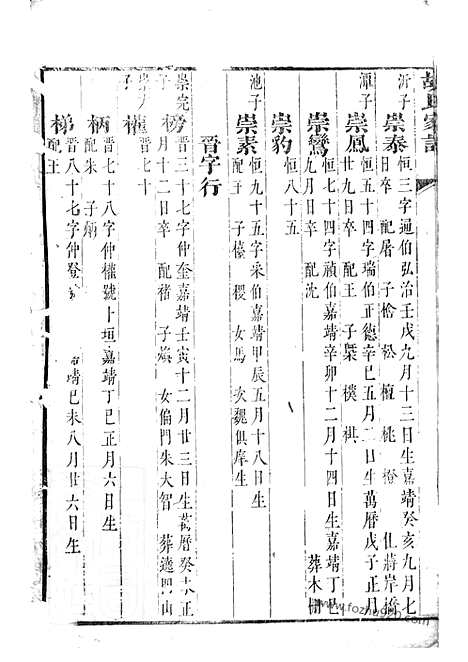 胡氏家譜
沂子
崇泰 恒三字通伯弘治壬戌九月十三日生嘉靖癸亥九月七
日卒 配屠 子檜 松 檀 桃 仕蔣岸橋
潭子
崇鳳 恒五十四字瑞伯正德辛巳五月二日生萬曆戊子正月
廿日卒 配王 子棐 樸 棋
崇鸞 恒七十四字禎伯嘉靖辛卯十二月十四日生嘉靖丁巳
九月日卒 配沈 葬木柵
崇豹 恒八十五
池子
崇素 恒九十五字采伯嘉靖甲辰五月十八日生
配于 子檯 稷 女馬 次魏俱庠生
晉字行
崇完子
晉三十七字仲奎嘉靖壬寅十二月廿三日生萬曆癸未正
月十二日卒 配褚 子 女偏門朱大智 葬 門山
權 晉七十
柄 晉七十八字仲權號十垣嘉靖丁巳正月六日生
配朱 子炳
梯 晉八十七字仲登 靖己未八月廿六日生
配王
www.fozhu920.com